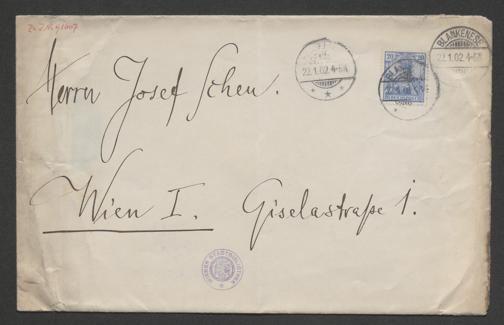 BLANKENESE
22.1.02.4-5N
22.1.02.4-5N
20
Herrn Josef Scheu.
Wien I. Giselastraße 1.
WIENER STADTBIBLIOTHEK